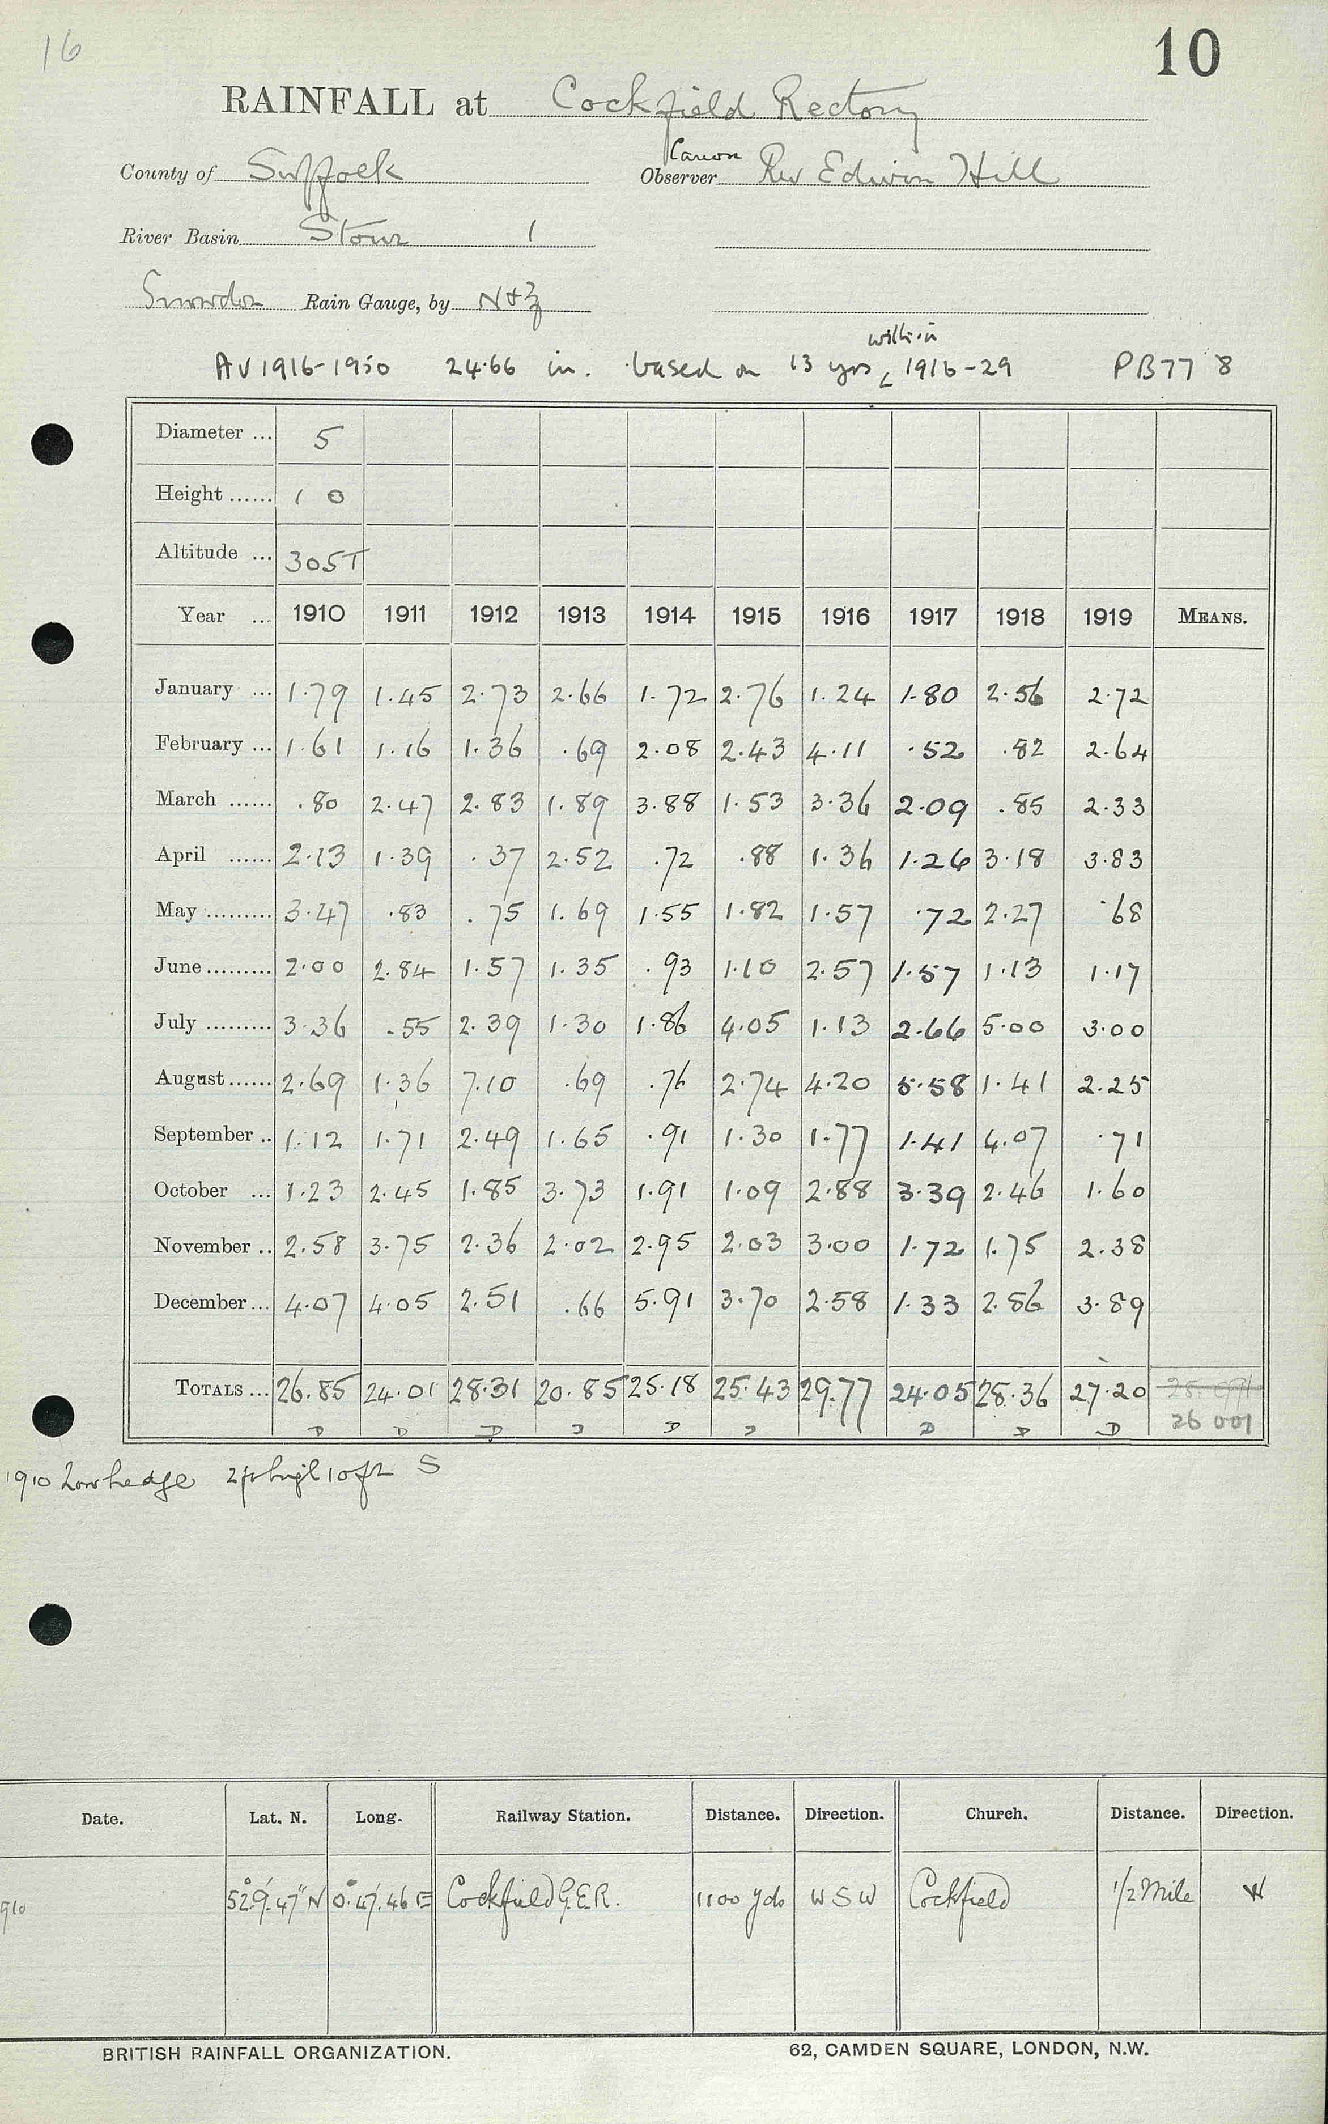 16
10
RAINFALL at Cockfield Rectory
County of Suffolk Observer Canon Rev Edwin Hill
River Basin Stour 1
Snowdon Rain Gauge, by N & Z
AV 1916-1950 24.66 in. based on 13 yrs within 1916-29 PB77 8
Diameter ... 5
Height ...... 1 0
Altitude ... 305T
Year ... 1910 1911 1912 1913 1914 1915 1916 1917 1918 1919 MEANS.
January ... 1.79 1.45 2.73 2.66 1.72 2.76 1.24 1.80 2.56 2.72
February ... 1.61 1.16 1.36 .69 2.08 2.43 4.11 .52 .82 2.64
March ...... .80 2.47 2.83 1.89 3.88 1.53 3.36 2.09 .85 2.33
April ...... 2.13 1.39 .37 2.52 .72 .88 1.36 1.26 3.18 3.83
May ......... 3.47 .83 .75 1.69 1.55 1.82 1.57 .72 2.27 .68
June ......... 2.00 2.84 1.57 1.35 .93 1.10 2.57 1.57 1.13 1.17
July ......... 3.36 .55 2.39 1.30 1.86 4.05 1.13 2.66 5.00 3.00
August ...... 2.69 1.36 7.10 .69 .76 2.74 4.20 5.58 1.41 2.25
September .. 1.12 1.71 2.49 1.65 .91 1.30 1.77 1.41 4.07 .71
October ... 1.23 2.45 1.85 3.73 1.91 1.09 2.88 3.39 2.46 1.60
November .. 2.58 3.75 2.36 2.02 2.95 2.03 3.00 1.72 1.75 2.38
December ... 4.07 4.05 2.51 .66 5.91 3.70 2.58 1.33 2.86 3.89
TOTALS ... 26.85 24.01 28.31 20.85 25.18 25.43 29.77 24.05 28.36 27.20
26 001
1910 Low hedge 2ft high 10ft S
Date. Lat. N. Long. Railway Station. Distance. Direction. Church. Distance. Direction.
910 52°9'.47" N 0°.47'.46 E Cockfield G.E.R. 1100 yds W S W Cockfield 1/2 Mile W
BRITISH RAINFALL ORGANIZATION. 62, CAMDEN SQUARE, LONDON, N.W.